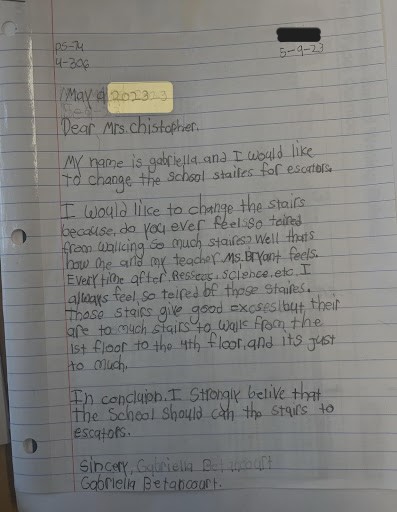 PS-74
4-306
5-9-23
May 9 2023
Dear Mrs. Chistopher,
My name is gabriella. and I would like
to change the school staires for escators.
I would like to change the stairs
because, do you ever feel so teired
from walking so much staires? Well thats
how me and my teacher Ms. Bryant feels.
Every time after. Ressess, science, etc. I
always feel so teired of those staires.
those stairs give good excses, but their
are to much stairs to walk from the
1st floor to the 4th floor, and its just
to much.
In conclution. I strongly belive that
the school should the stairs to
escators.
Sincery, Gabriella Betancourt
Gabriella Betancourt.